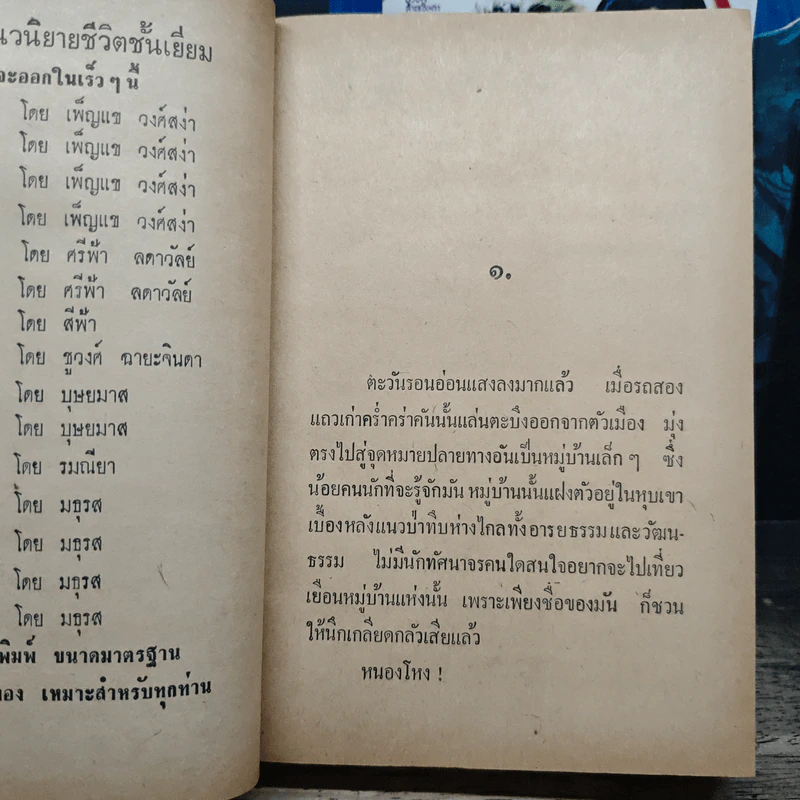 นวนิยายชีวิตชั้นเยี่ยม
จะออกในเร็ว ๆ นี้
โดย เพ็ญแข วงศ์สง่า
โดย เพ็ญแข วงศ์สง่า
โดย เพ็ญแข วงศ์สง่า
โดย เพ็ญแข วงศ์สง่า
โดย ศรีฟ้า ลดาวัลย์
โดย ศรีฟ้า ลดาวัลย์
โดย สีฟ้า
โดย ชูวงศ์ ฉายะจินดา
โดย บุษยมาส
โดย บุษยมาส
โดย รมณียา
โดย มธุรส
โดย มธุรส
โดย มธุรส
โดย มธุรส
พิมพ์ ขนาดมาตรฐาน
เหมาะสำหรับทุกท่าน
๑.
ตะวันรอนอ่อนแสงลงมากแล้ว เมื่อรถสอง
แถวเก่าคร่ำคร่าคันนั้นแล่นตะบึงออกจากตัวเมือง มุ่ง
ตรงไปสู่จุดหมายปลายทางอันเป็นหมู่บ้านเล็ก ๆ ซึ่ง
น้อยคนนักที่จะรู้จักมัน หมู่บ้านนั้นแฝงตัวอยู่ในหุบเขา
เบื้องหลังแนวป่าทึบห่างไกลทั้งอารยธรรมและวัฒน-
ธรรม ไม่มีนักทัศนาจรคนใดสนใจอยากจะไปเที่ยว
เยือนหมู่บ้านแห่งนั้น เพราะเพียงชื่อของมัน ก็ชวน
ให้นึกเกลียดกลัวเสียแล้ว
หนองโหง !